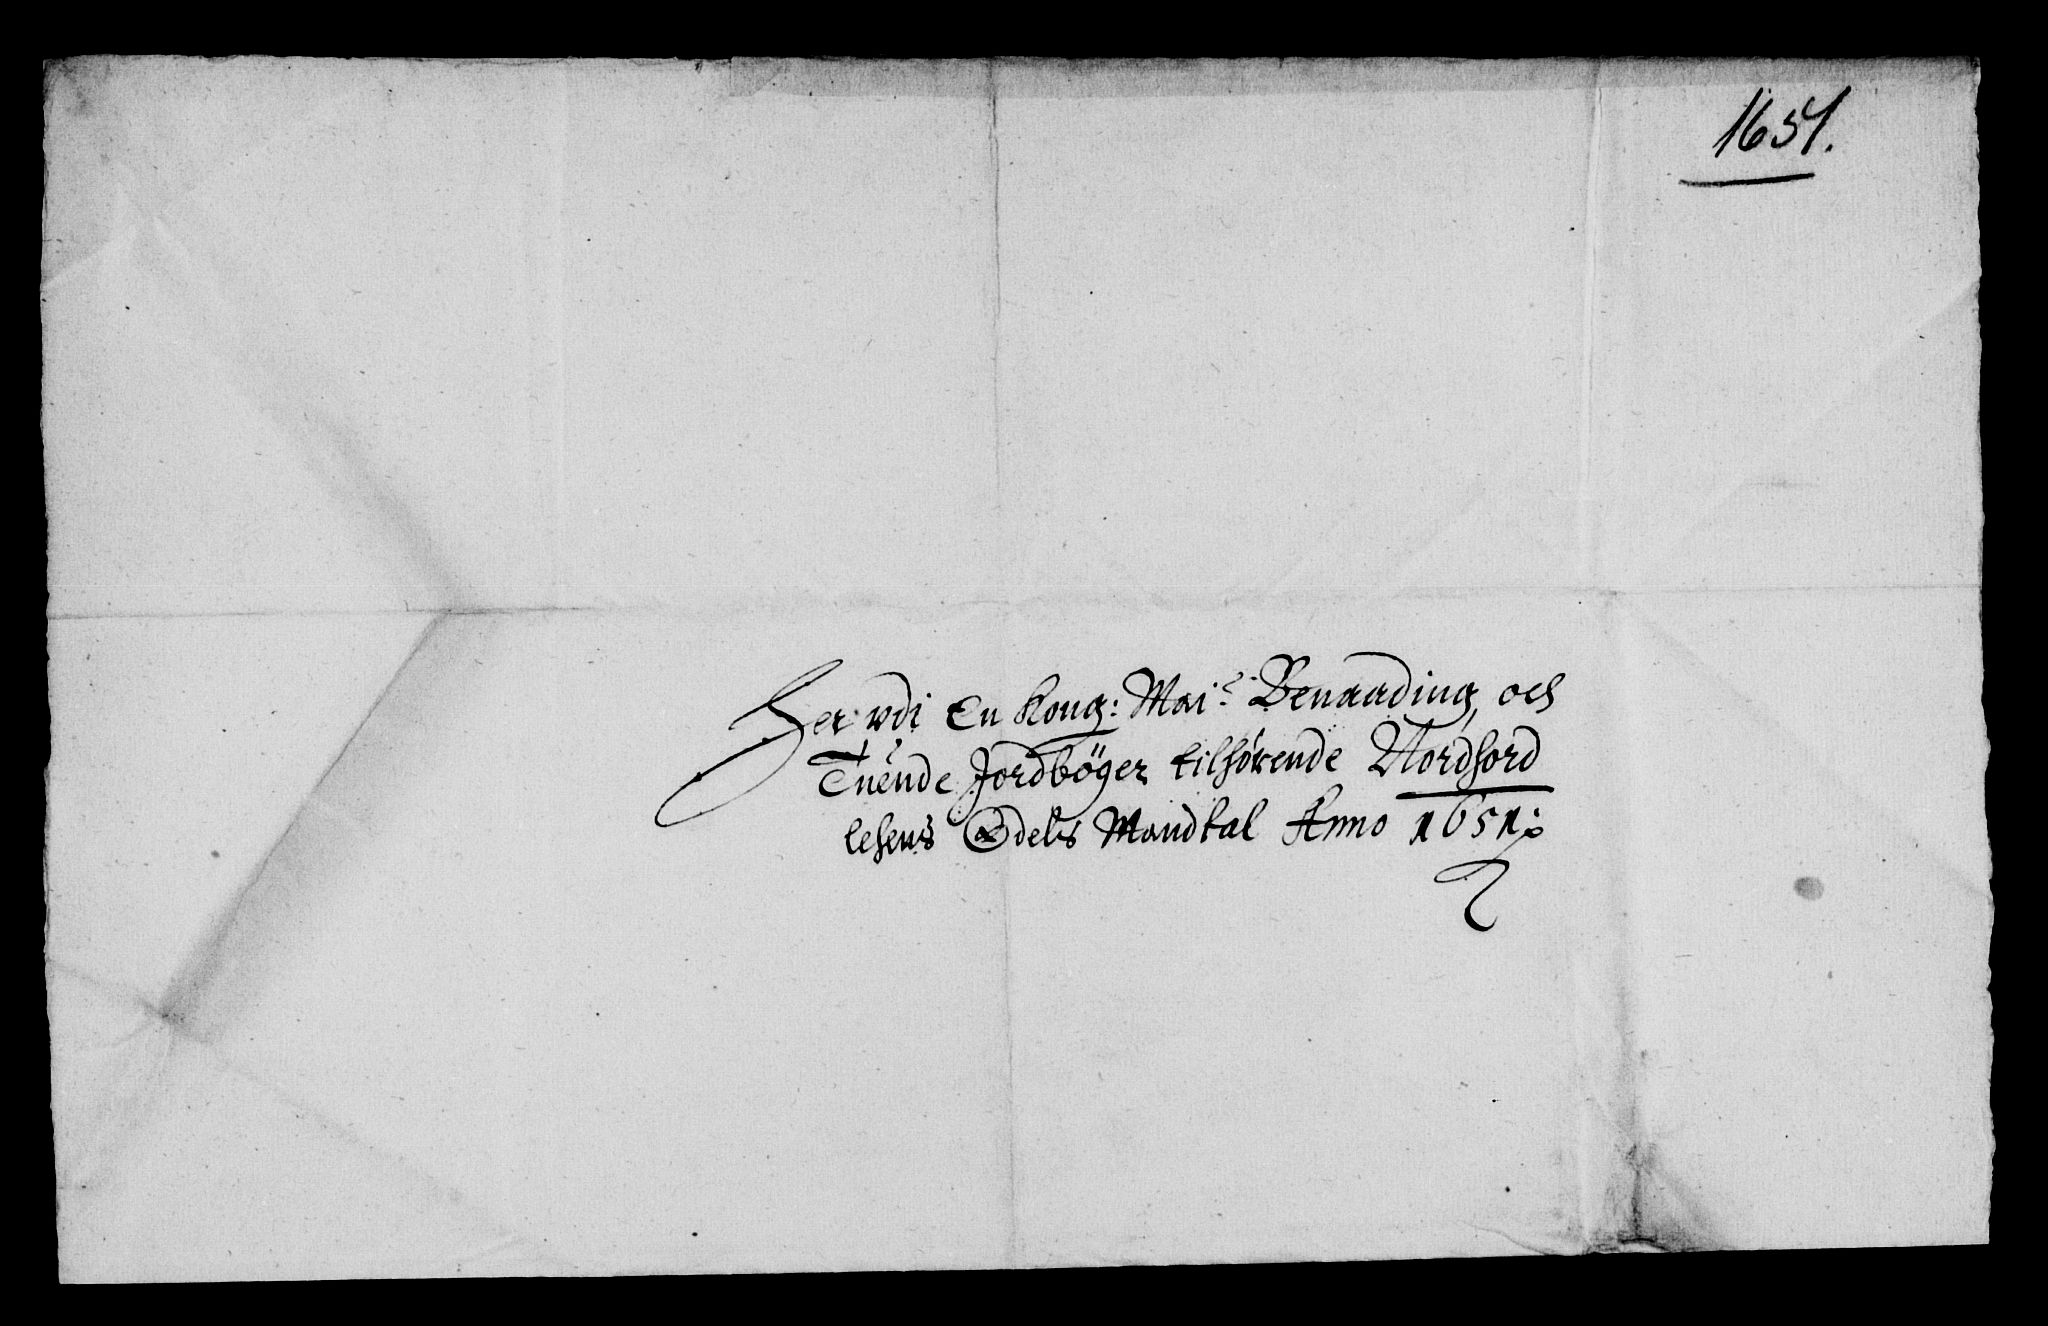 1651.
Her vdi En Kong: Mai: Benaading, och
Tuende Jordbøger tilhörende Nordhord
lehens Odels Mandtal Anno 1651: